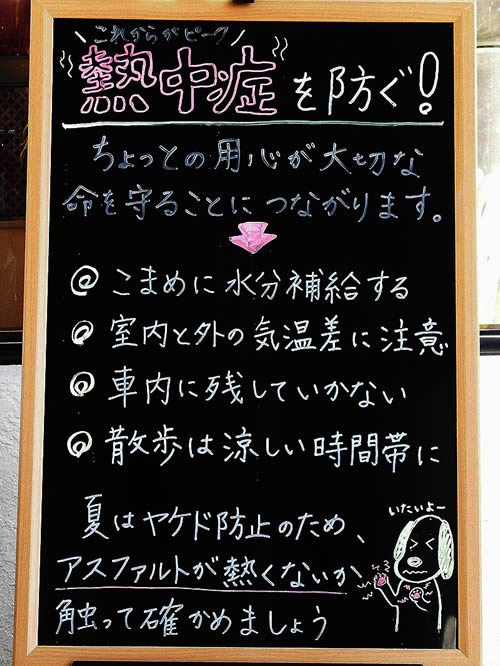 これからがピーク
熱中症を防ぐ!
ちょっとの用心が大切な
命を守ることにつながります。
こまめに水分補給する
室内と外の気温差に注意
車内に残していかない
散歩は涼しい時間帯に
夏はヤケド防止のため、
アスファルトが熱くないか
触って確かめましょう
いたいよー